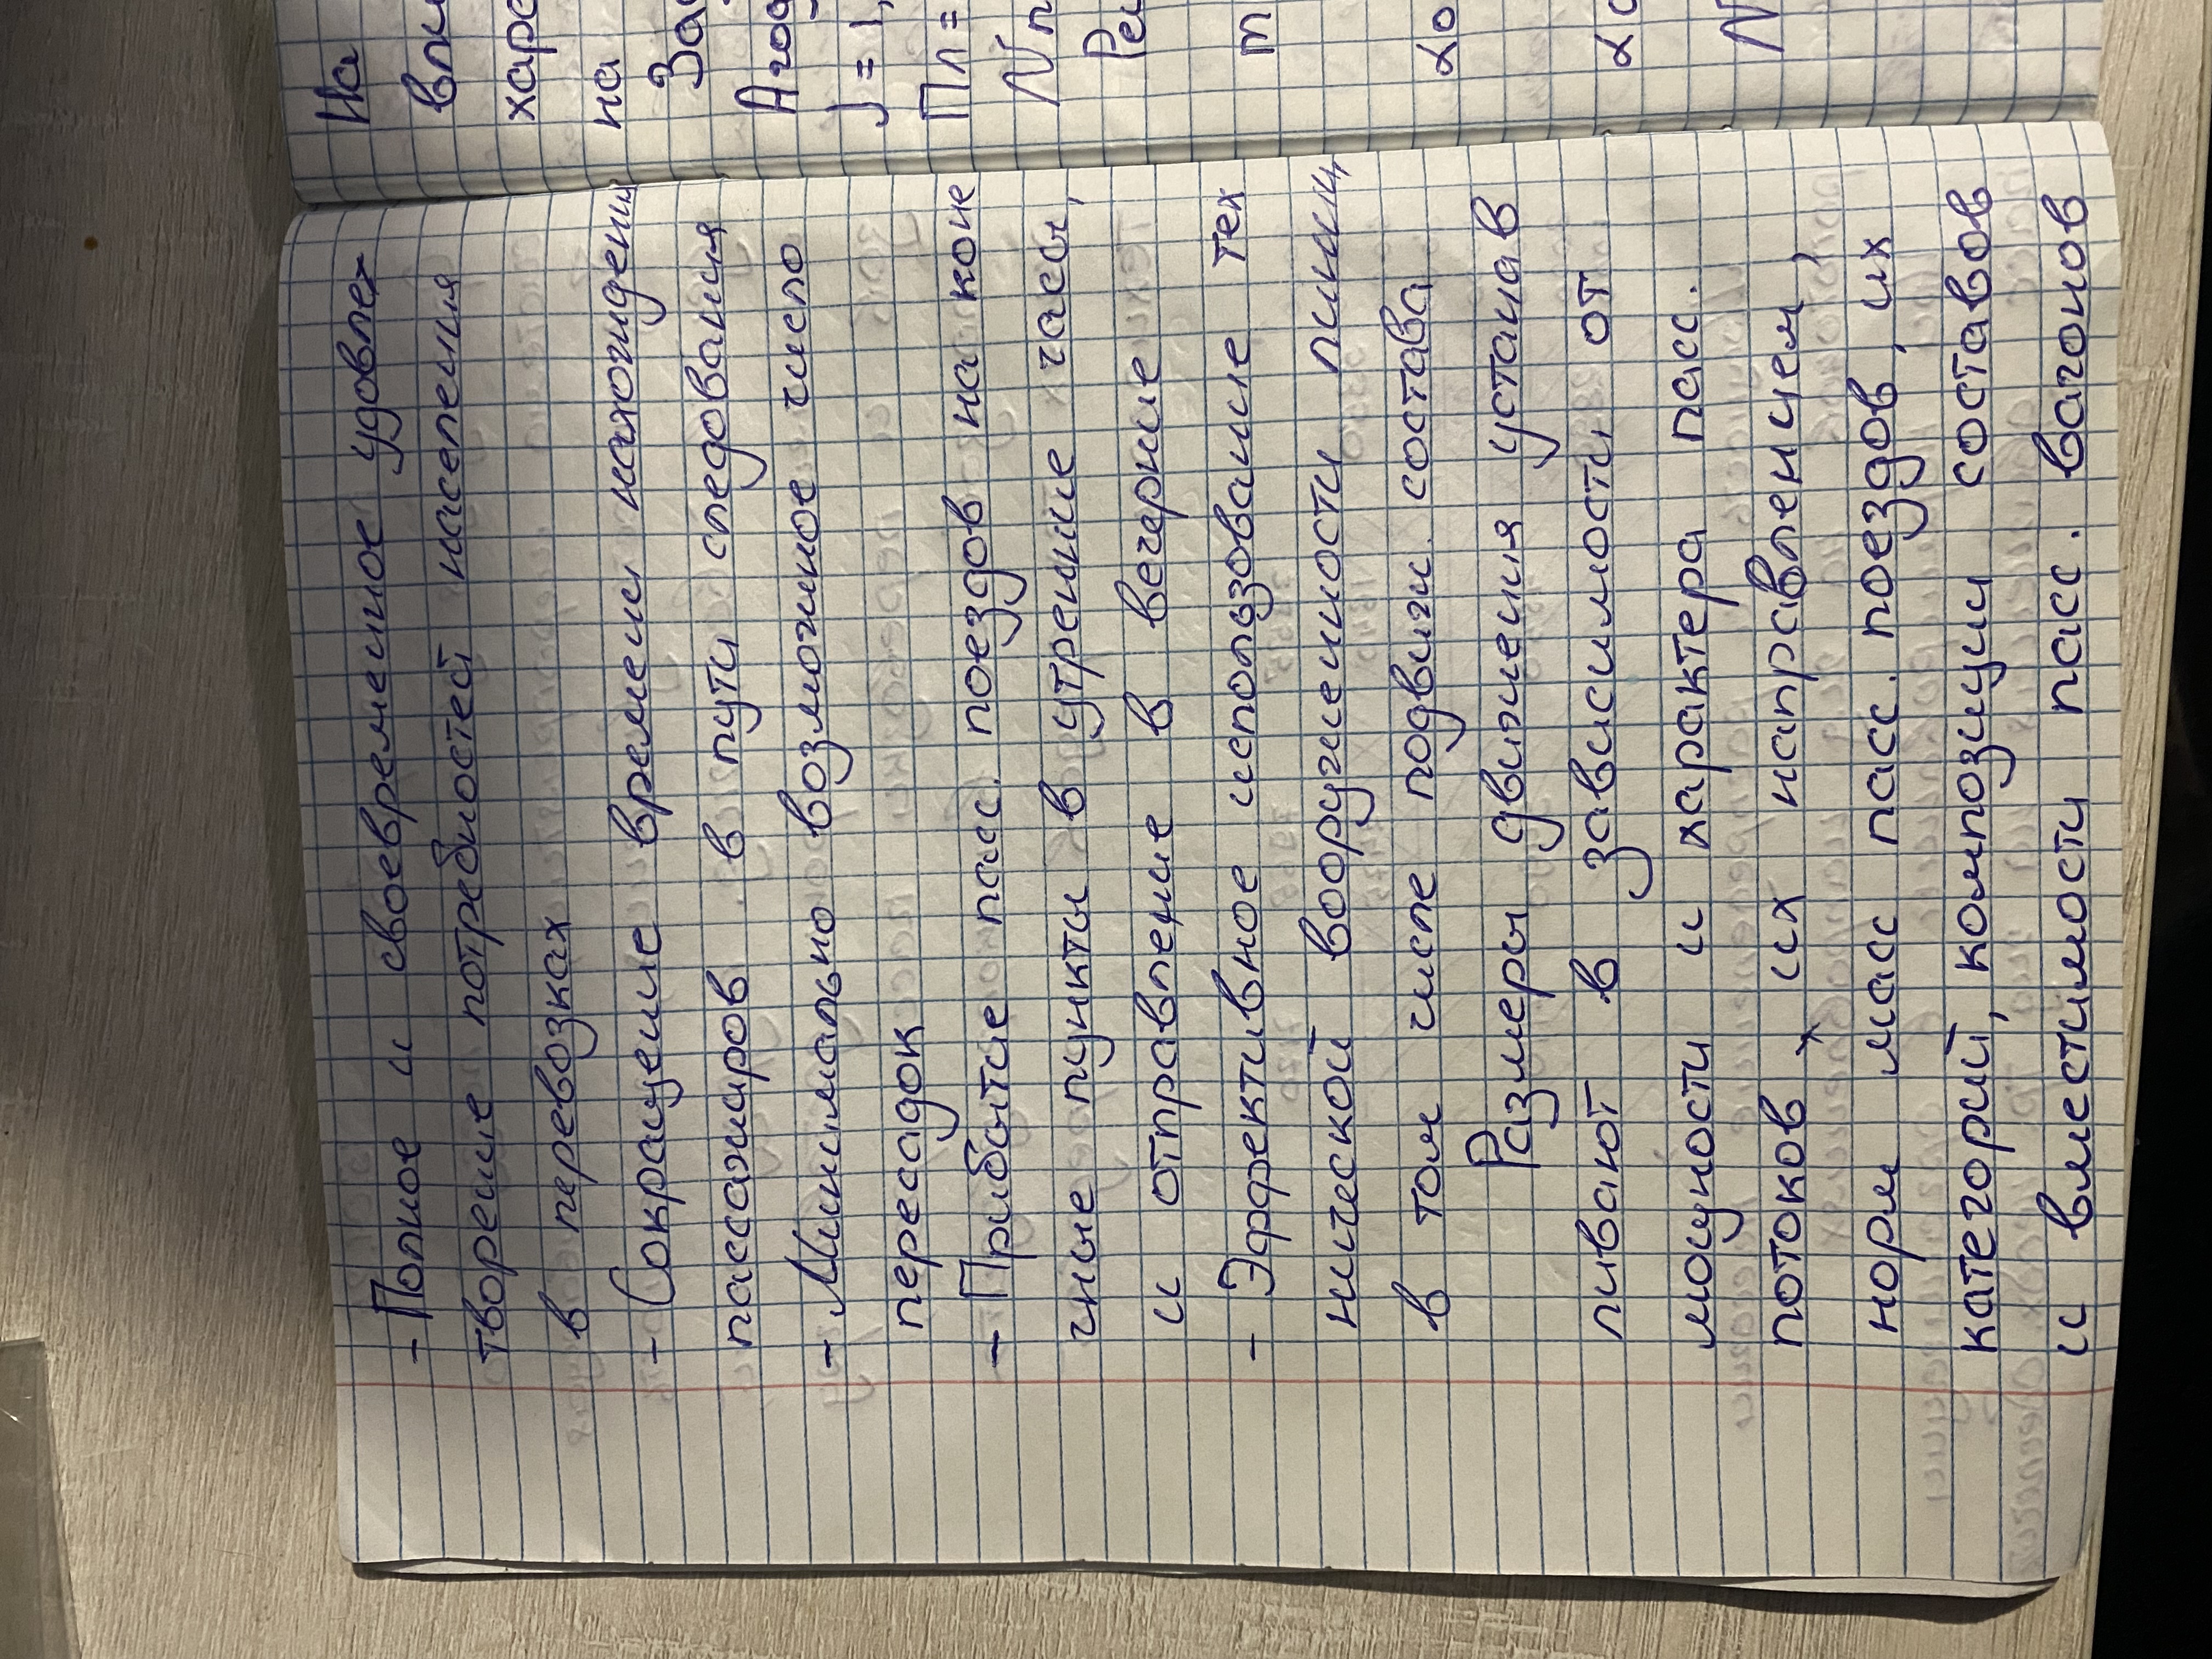 - Полное и своевременное удовлет
творение потребностей населения
в перевозках
- Сокращение времени нахождения
пассажиров в пути следования
- Минимально возможное число
пересадок
- Прибытие пасс. поездов на коне
чные пункты в утренние часы,
и отправление в вечерние
- Эффективное использование тех
нической вооруженности линии,
в том числе подвижн. состава
Размеры движения устанав
ливают в зависимости от
мощности и характера пасс.
потоков, их направлением,
норм масс пасс. поездов, их
категорий, композиции составов
и вместимости пасс. вагонов
На
впи
харе
на
За
А год
J = 1,
Пл =
N п
Ре
m
α о
α с
N